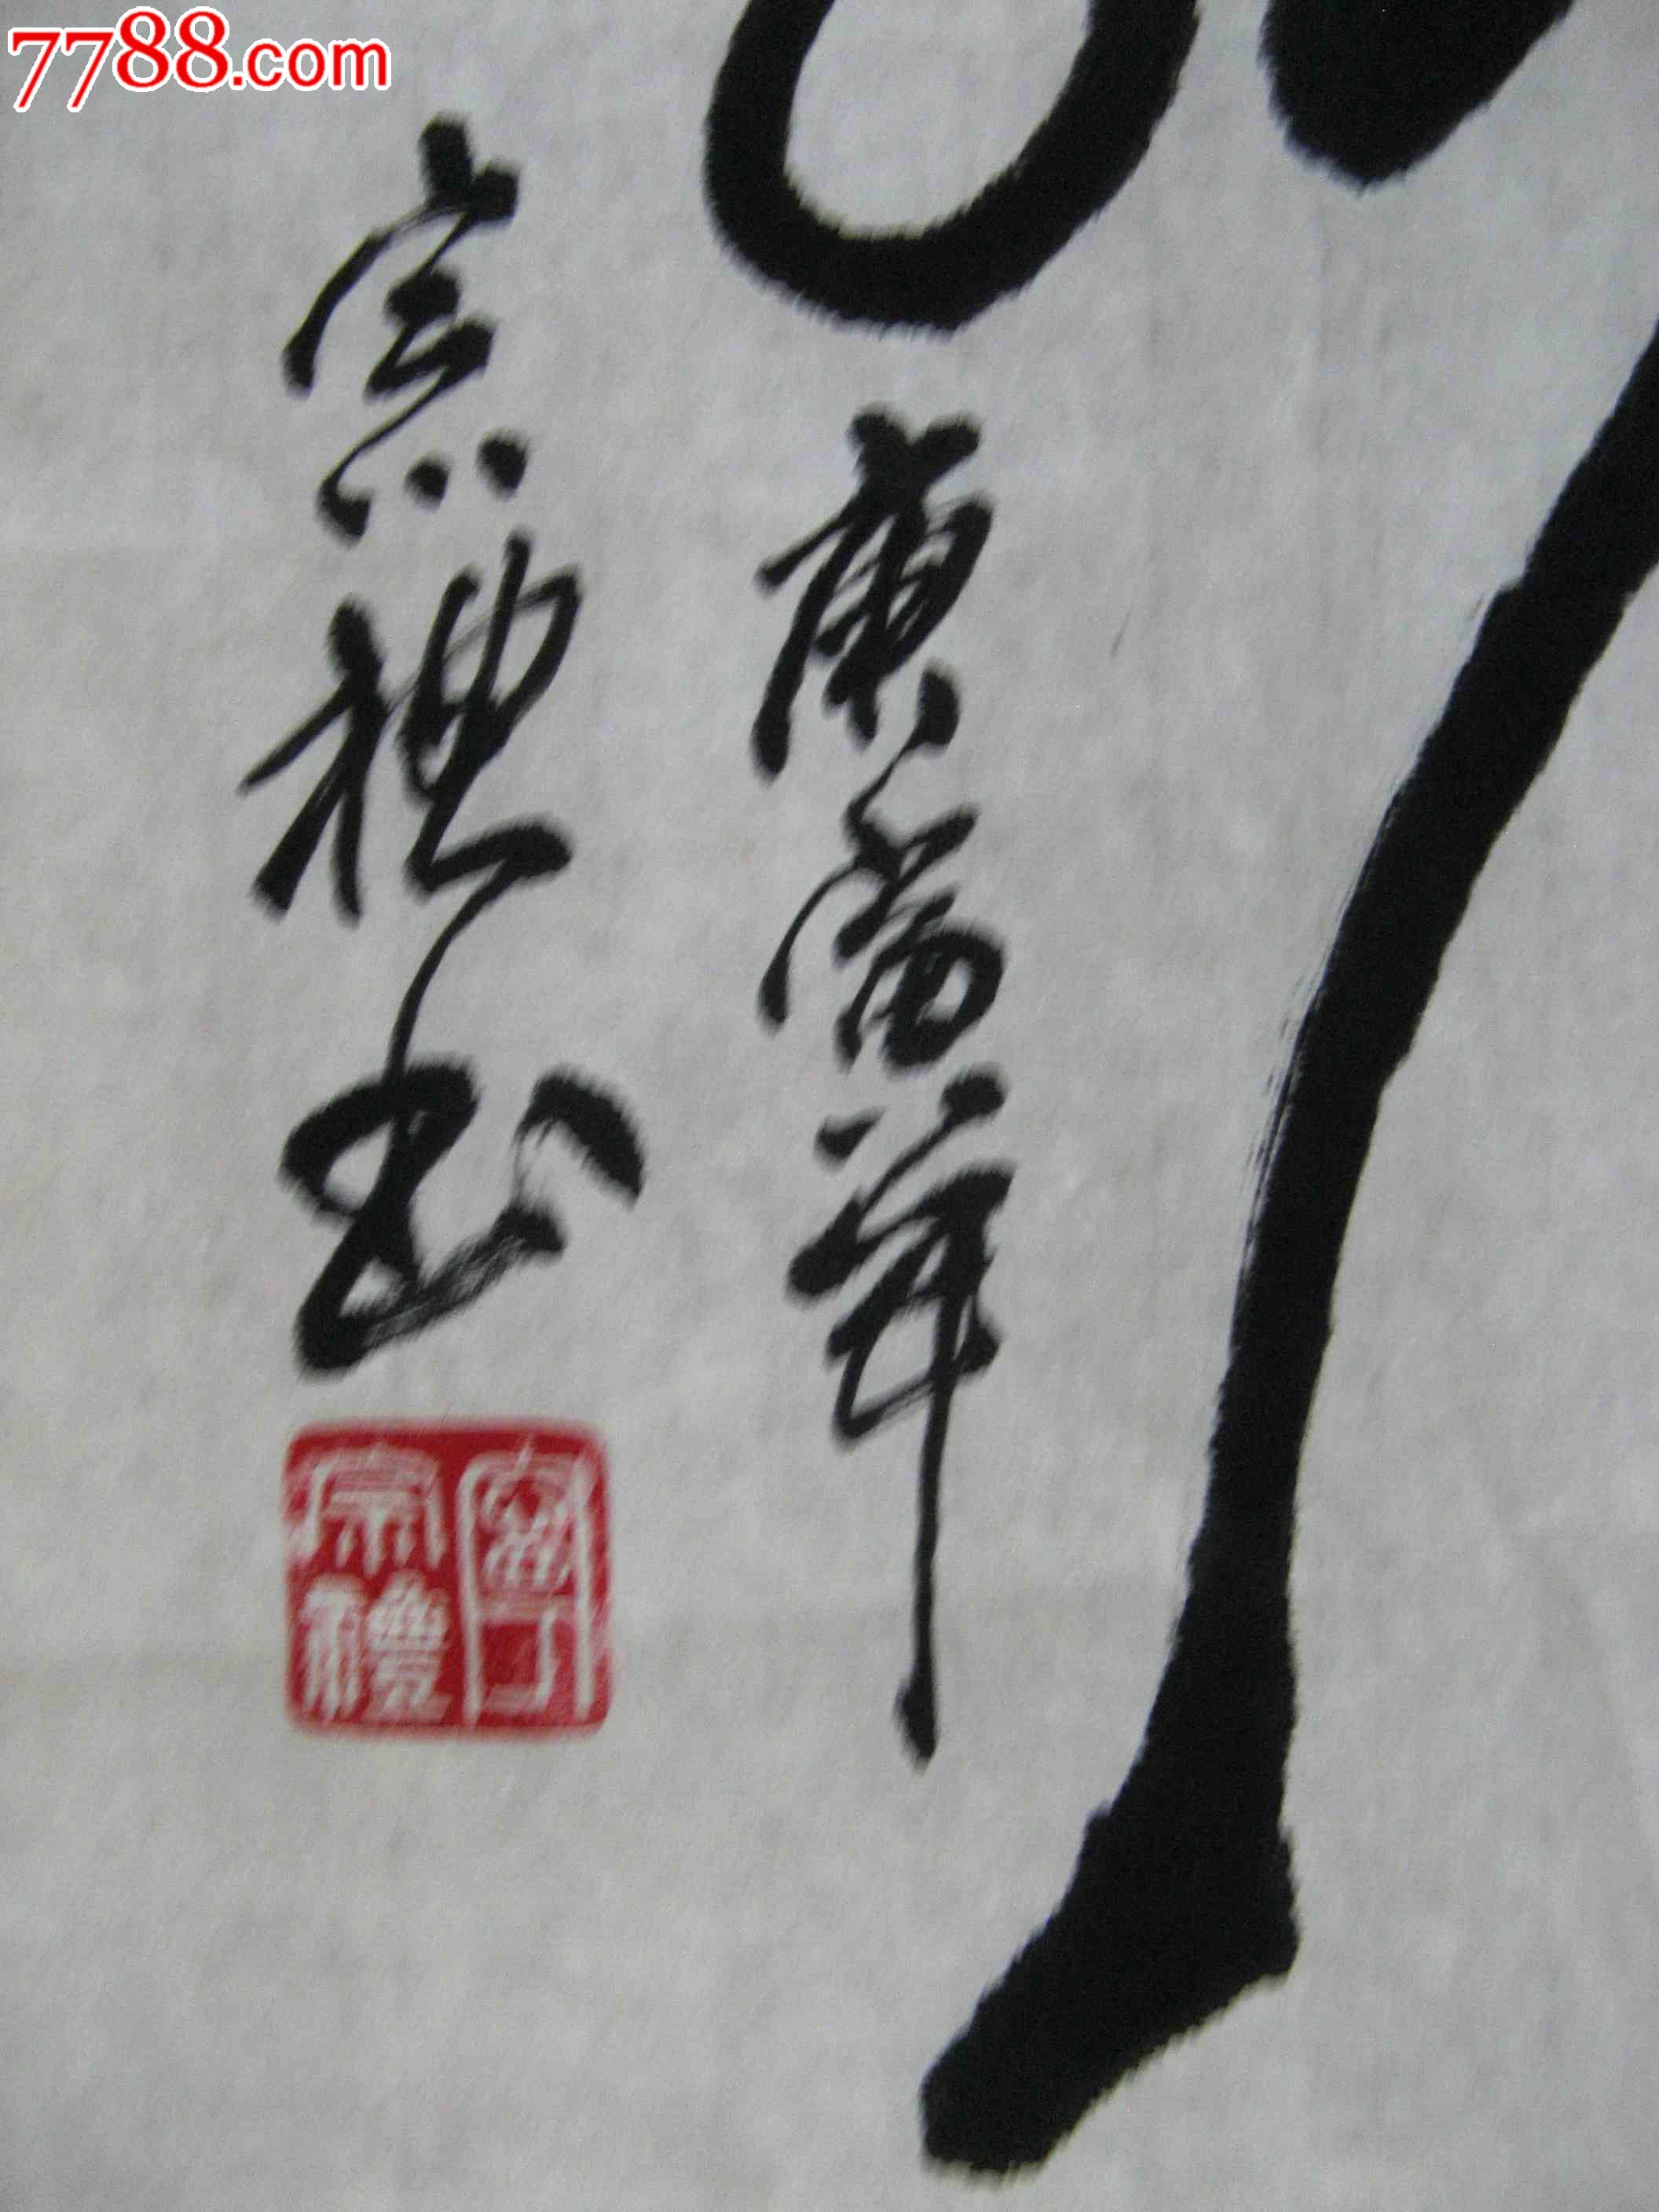 7788.com
庚寅年
宗禮书
寧
宗禮